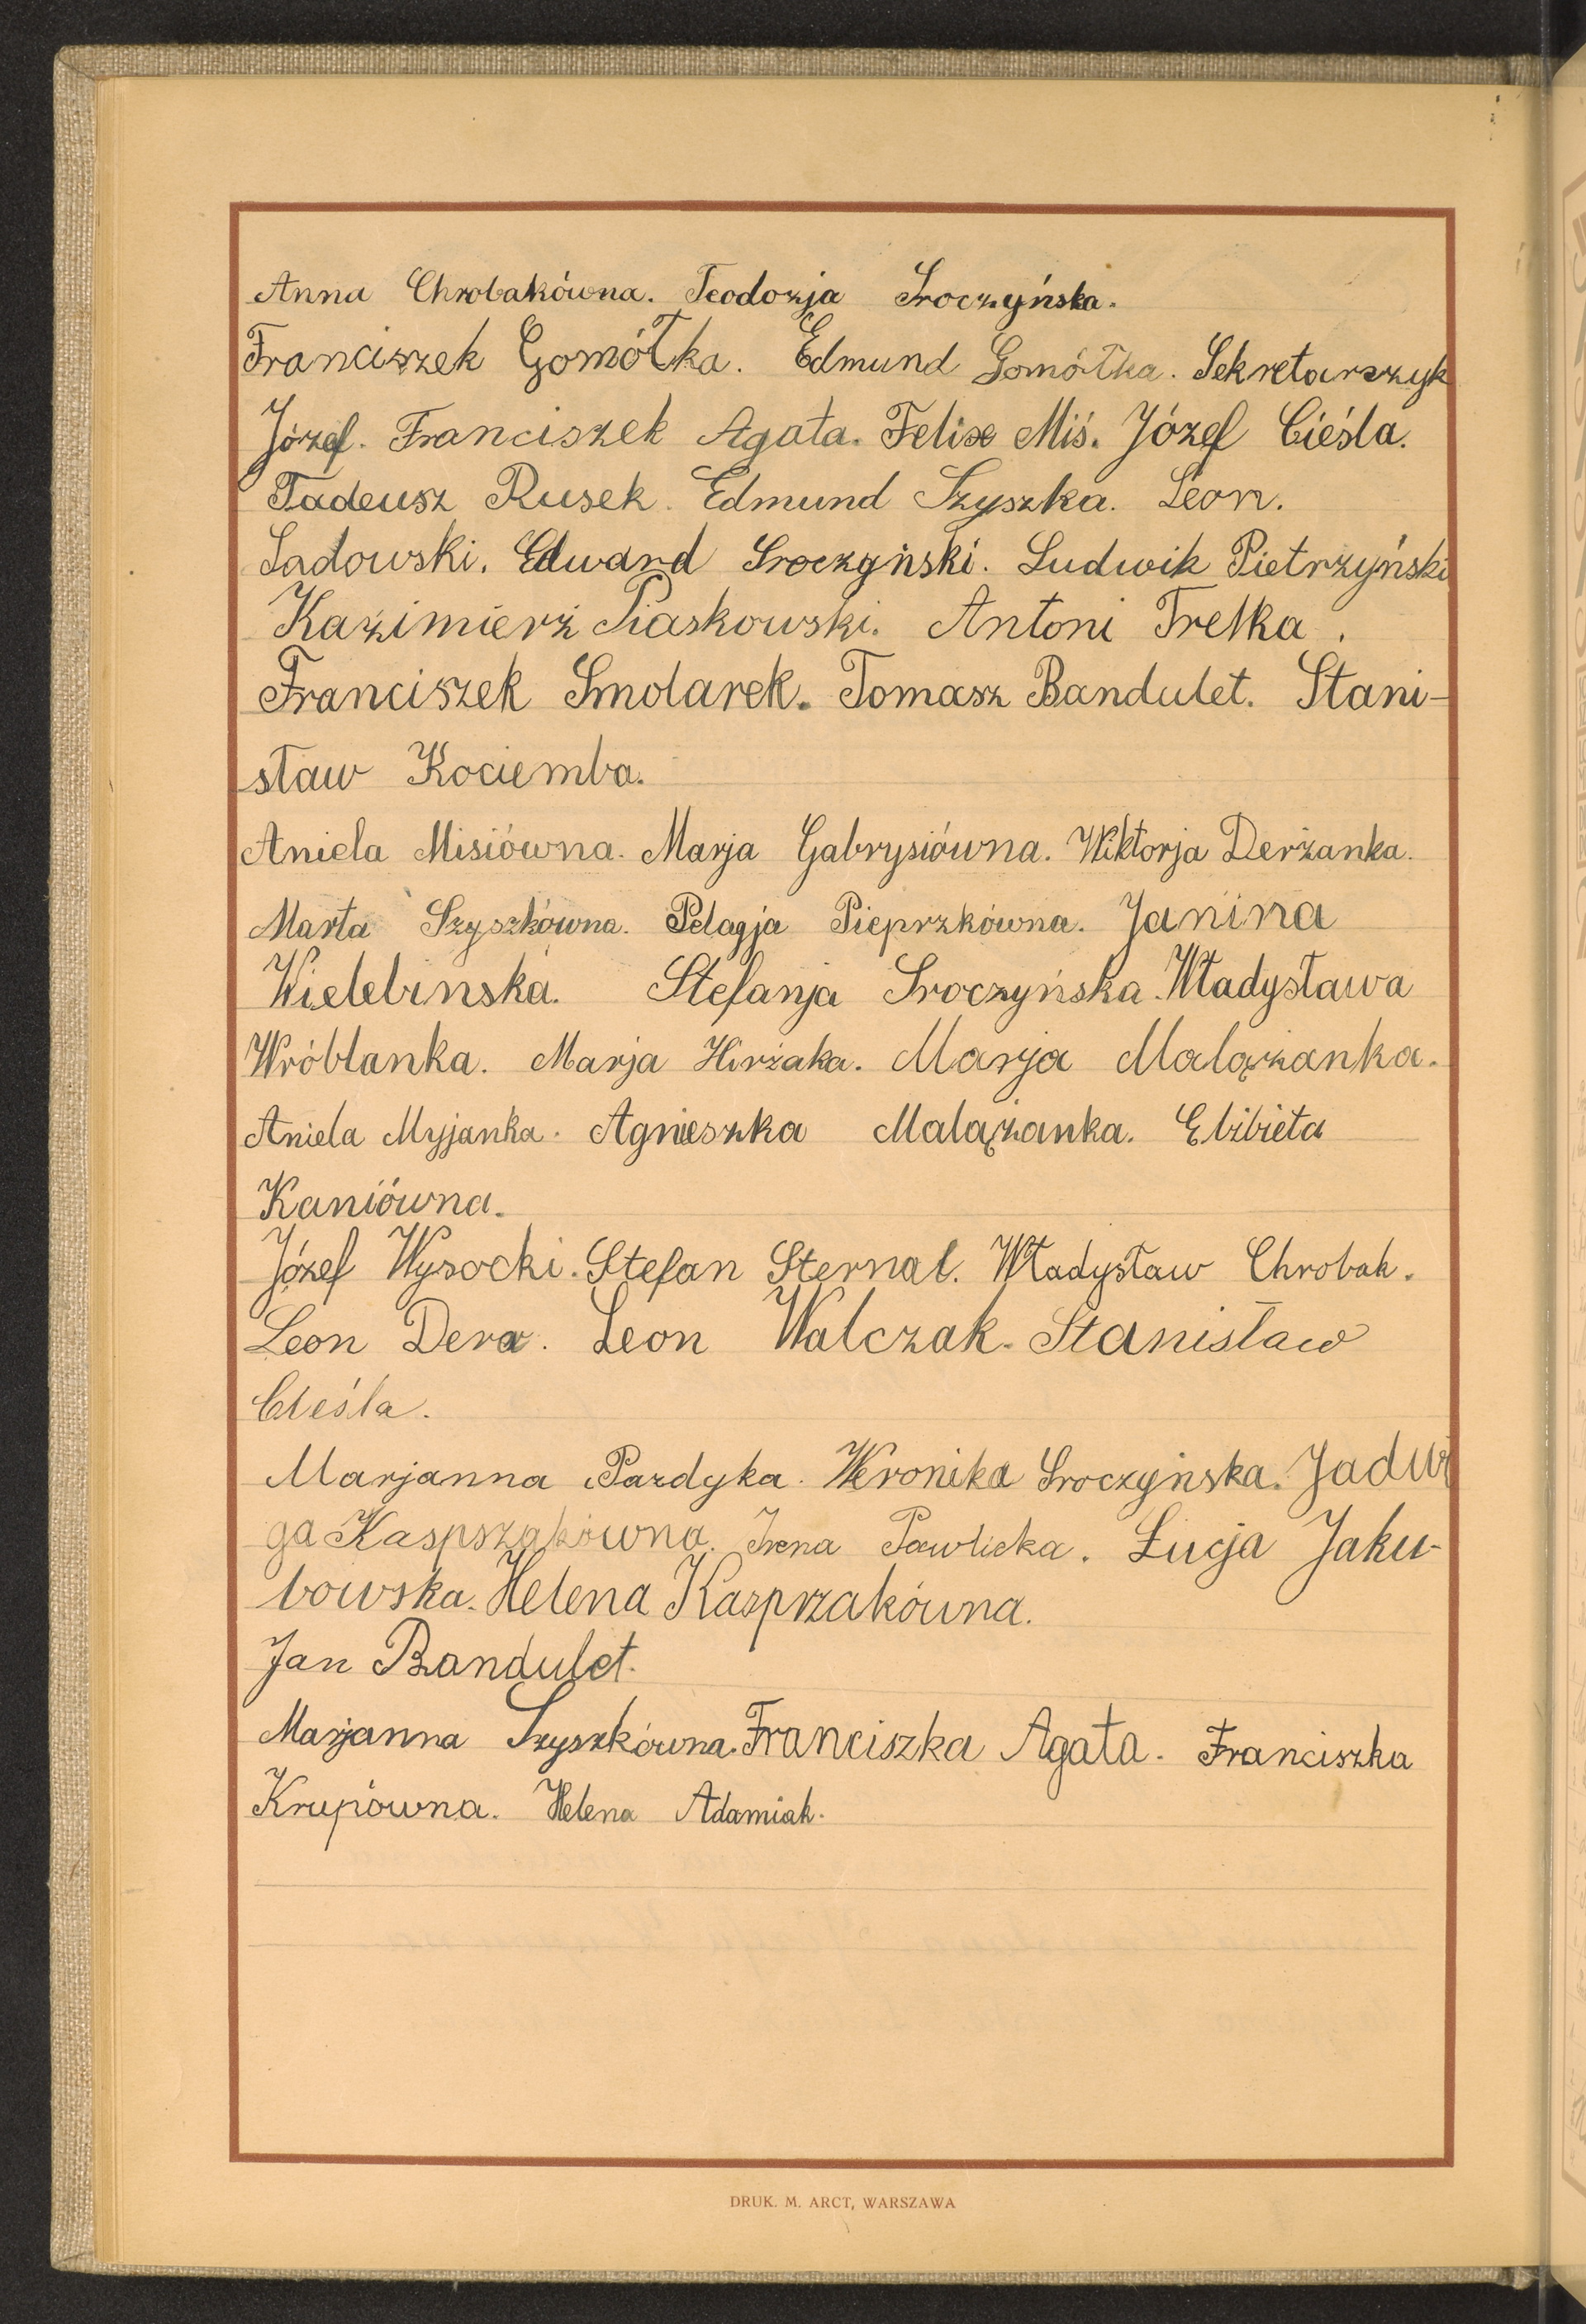 Anna Chrobakówna. Teodozja Sroczyńska.
Franciszek Gomółka. Edmund Gomółka. Sekretarczyk
Józef. Franciszek Agata. Felix Miś. Józef Cieśla.
Tadeusz Rusek. Edmund Szyszka. Leon.
Sadowski. Edward Sroczyński. Ludwik Pietrzyński
Kazimierz Piaskowski. Antoni Trelka.
Franciszek Smolarek. Tomasz Bandulet. Stani-
sław Kociemba.
Aniela Misiówna. Marja Gabrysiówna. Wiktorja Derżanka.
Marta Szyszkówna. Pelagja Pieprzkówna. Janina
Wielebinska. Stefanja Sroczyńska. Władysława
Wróblanka. Marja Hirżaka. Marja Malązanka.
Aniela Myjanka. Agnieszka Malązanka. Elżbieta
Kaniówna.
Józef Wysocki. Stefan Sternal. Władysław Chrobak.
Leon Dera. Leon Walczak. Stanisław
Cieśla.
Marjanna Pazdyka. Weronika Sroczyńska. Jadwi
ga Kaspszakówna. Irena Pawlicka. Łucja Jaku-
bowska. Helena Kasprzakówna.
Jan Bandulet.
Marjanna Szyszkówna. Franciszka Agata. Franciszka
Krupówna. Helena Adamiak.
DRUK. M. ARCT, WARSZAWA